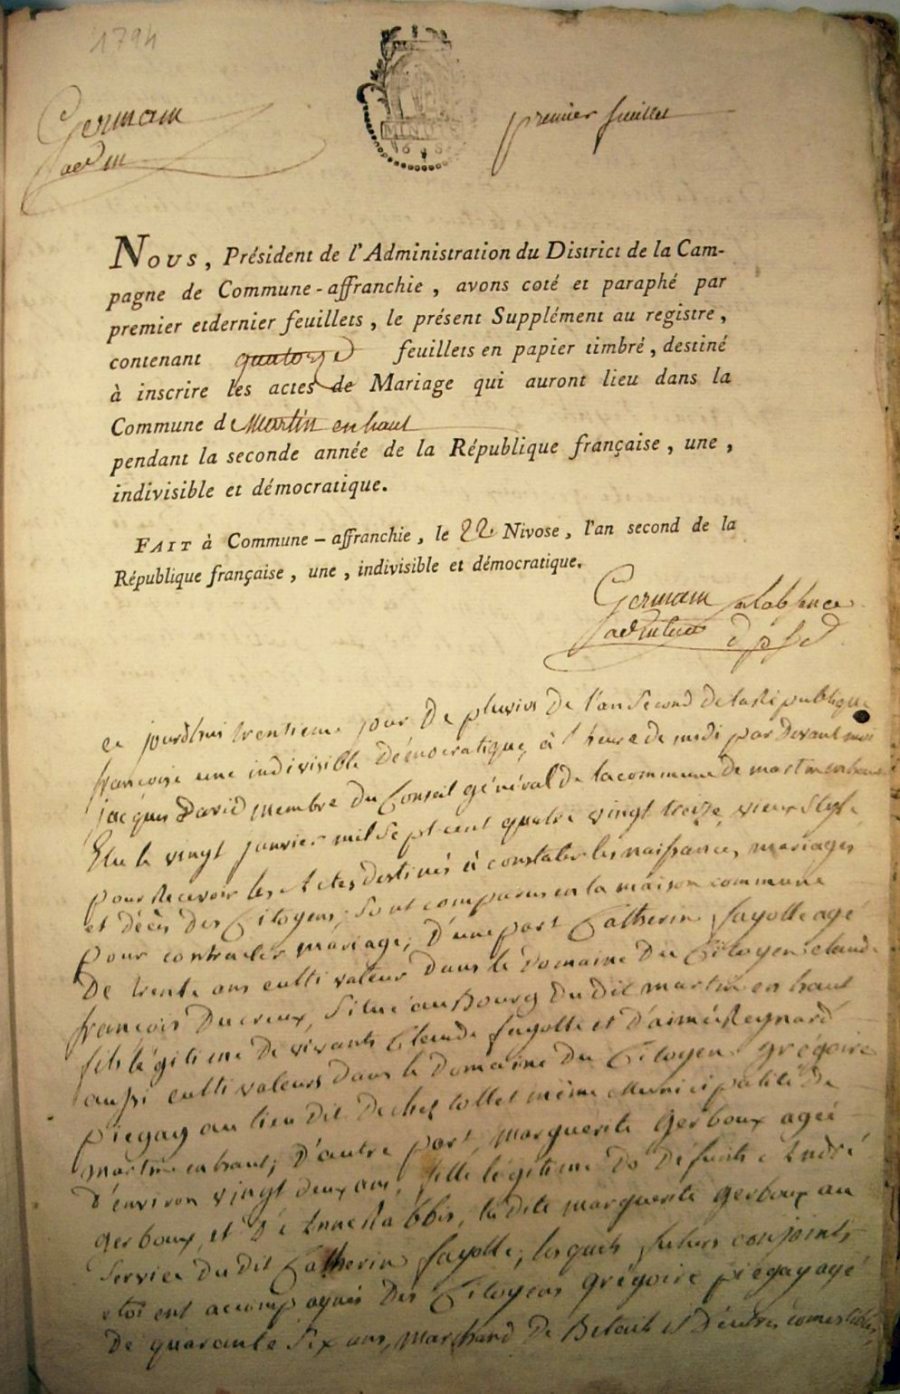 1794
Germain
premier feuillet
MINUTE
Nous, Président de l'Administration du District de la Cam-
pagne de Commune-affranchie, avons coté et paraphé par
premier etdernier feuillets, le présent Supplément au registre,
contenant quatorze feuillets en papier timbré, destiné
à inscrire les actes de Mariage qui auront lieu dans la
Commune de Martin en haut
pendant la seconde année de la République française, une,
indivisible et démocratique.
FAIT à Commune-affranchie, le 22 Nivose, l'an second de la
République française, une, indivisible et démocratique.
Germain
ce jourdhui trentieme jour De pluvios De l'an Second De la République
francoise une indivisible Démocratique, à l'heure de midi par Devant moi
jacques David membre Du Conseil général De la commune De martin en haut
Elu le vingt janvier mil Sept cent quatre vingt treize vieux Style
pour Recevoir les Actes destinés à constater les naissances, mariages
et Décès Des Citoyens, Sont comparus en la maison commune
pour contracter mariage, D'une part Catherin fayolle agé
De trente ans cultivateur Dans le Domaine Du Citoyen claude
francois Ducreux, Situé au Bourg Du Dit martin en haut
fils légitime De vivants Claude fayolle et D'aimé Reynard
aussi cultivateurs Dans le Domaine Du Citoyen grégoire
piegay au lieu dit De chez Collet même Municipalité De
martin en haut; D'autre part marguerite Gerboux agée
D'environ vingt deux ans, fille légitime De Défunts André
gerboux, et D'Anne Rabbis, la dite marguerite gerboux au
Service Du dit Catherin fayolle, lesquels futurs conjoints
etoient acompagnés Des Citoyens grégoire piegay agé
De quarante Six ans, marchand De et D'autres comestibles,